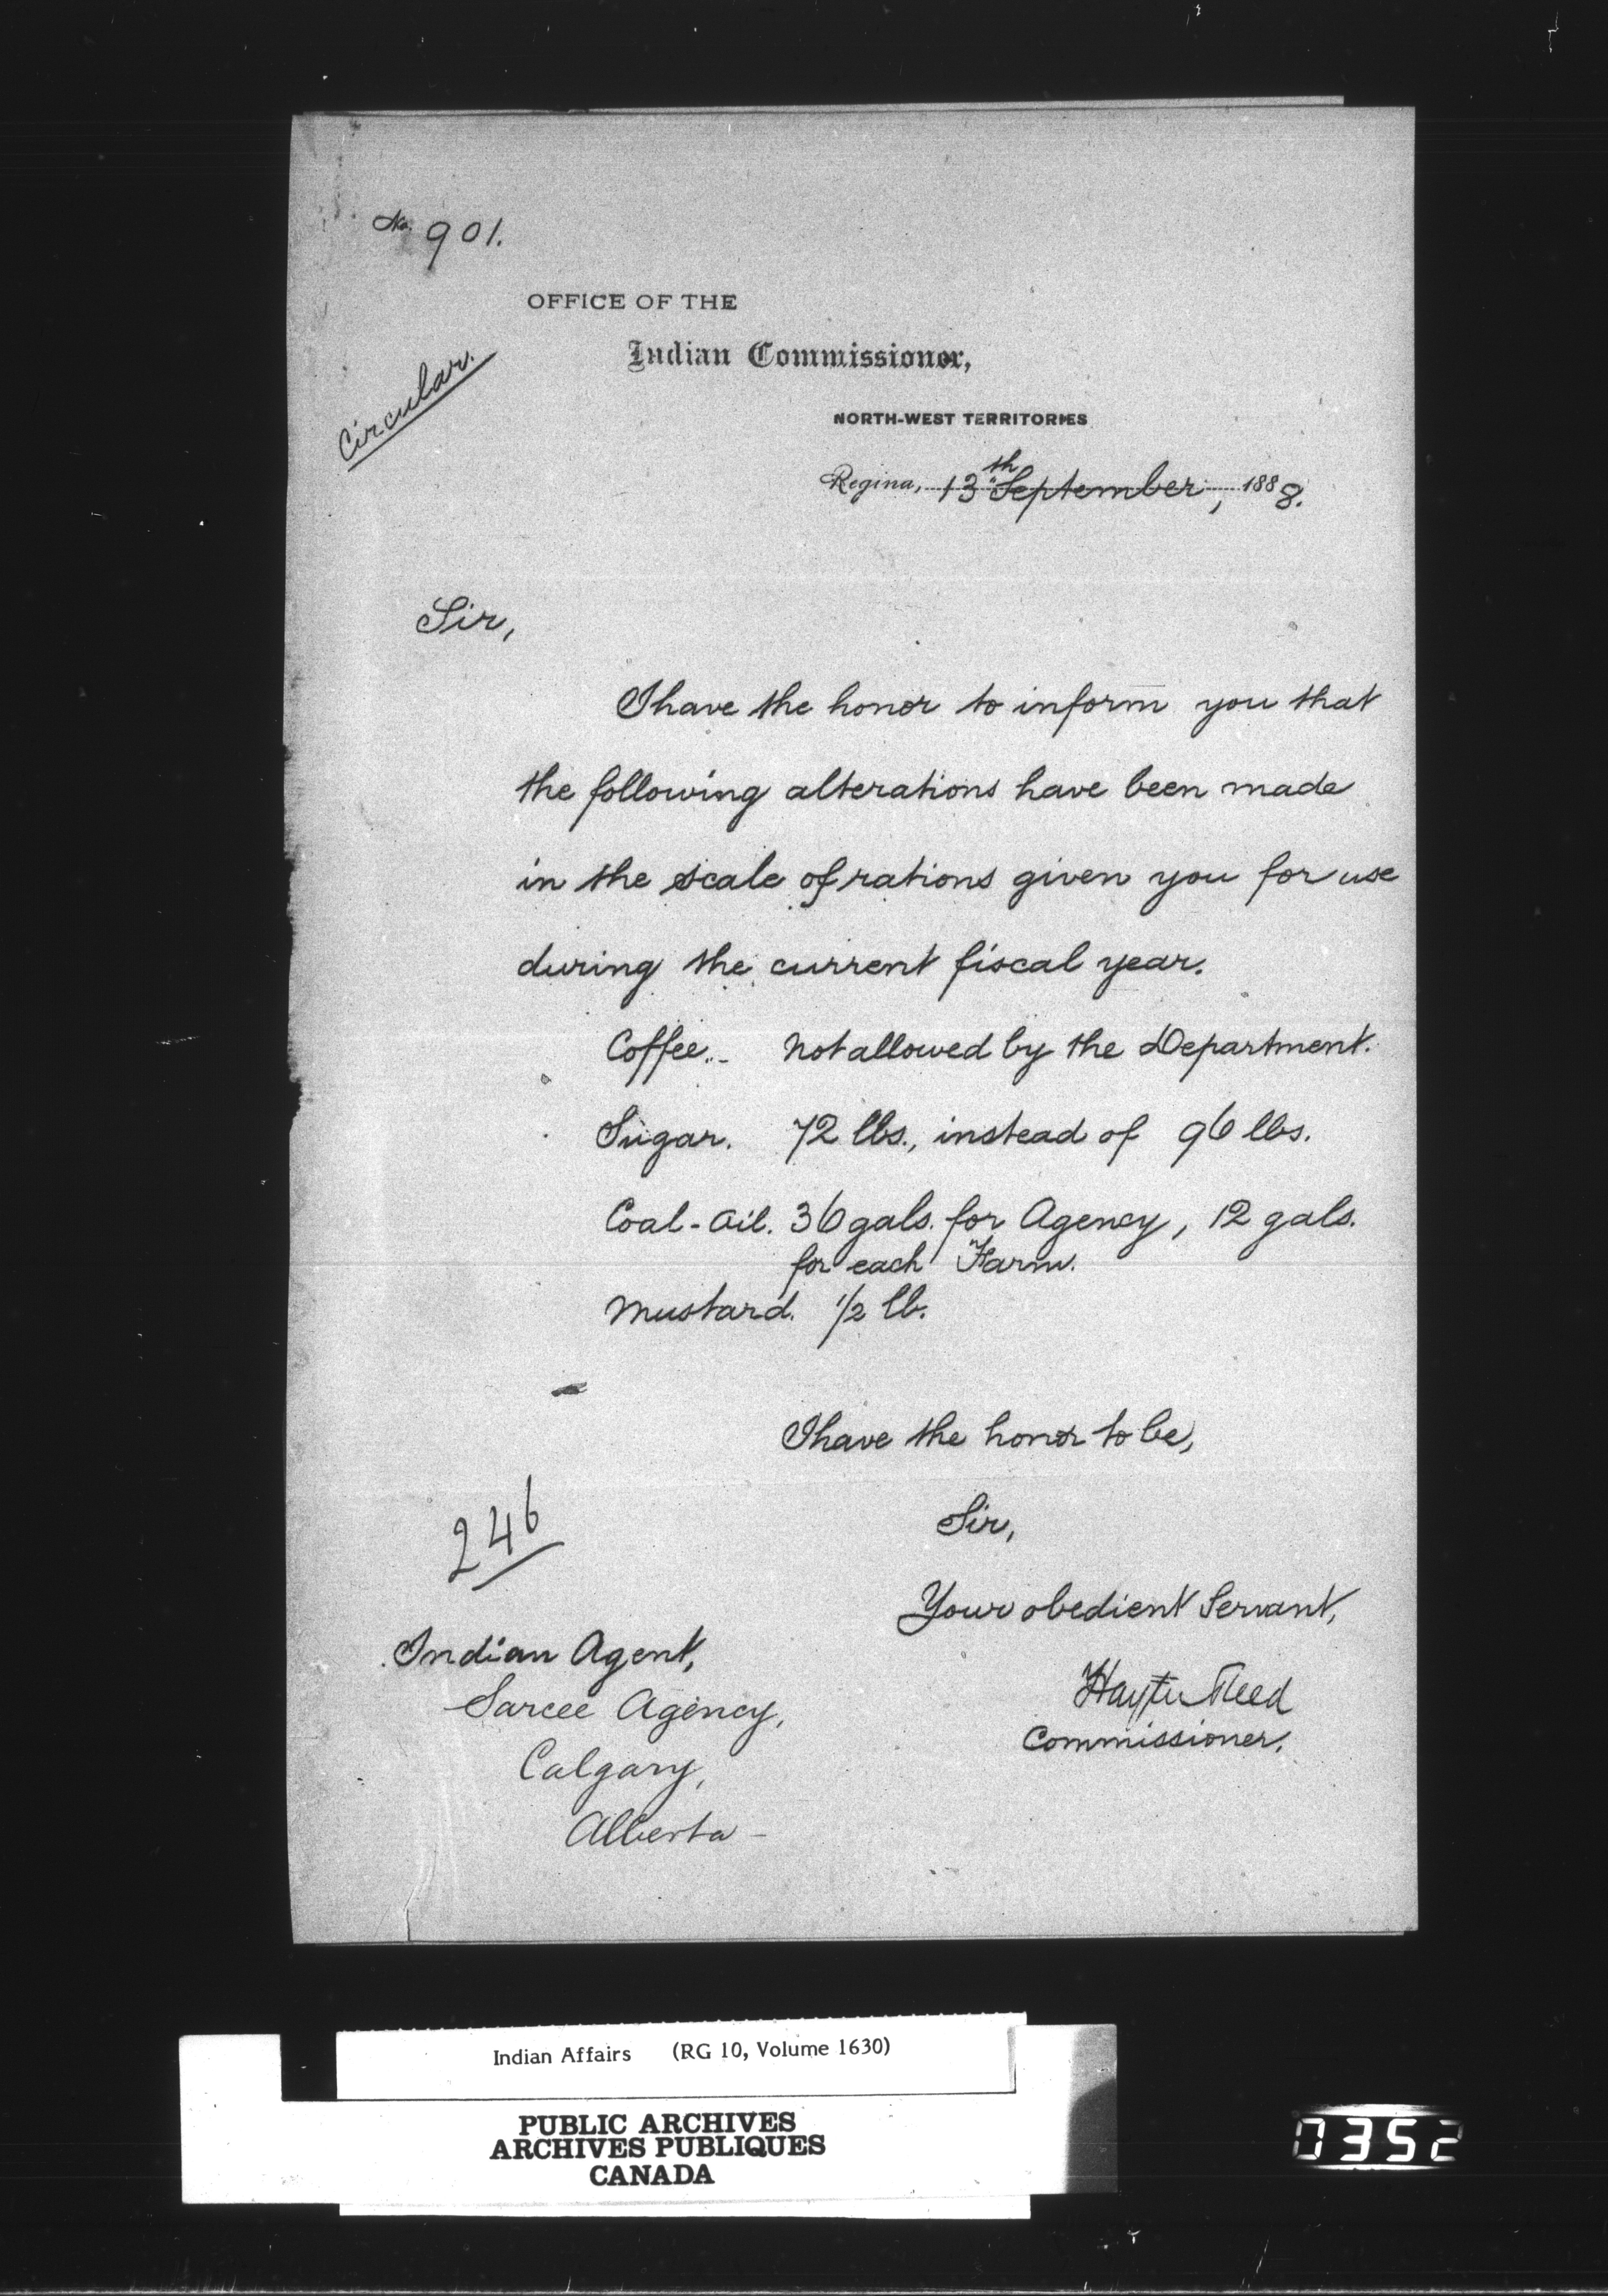 No. 901.
OFFICE OF THE
Indian Commissioner,
Circular.
NORTH-WEST TERRITORIES
Regina, 13th September, 1888.
Sir,
I have the honor to inform you that
the following alterations have been made
in the scale of rations given you for use
during the current fiscal year.
Coffee.. not allowed by the Department.
Sugar. 72 lbs., instead of 96 lbs.
Coal-Oil. 36 gals. for Agency, 12 gals.
for each Farm.
Mustard. 1/2 lb.
I have the honor to be,
Sir,
246
Your obedient Servant,
Indian Agent,
Sarcee Agency,
Calgary,
Alberta -
Hayter Reed
Commissioner.
Indian Affairs (RG 10, Volume 1630)
PUBLIC ARCHIVES
ARCHIVES PUBLIQUES
CANADA
0352